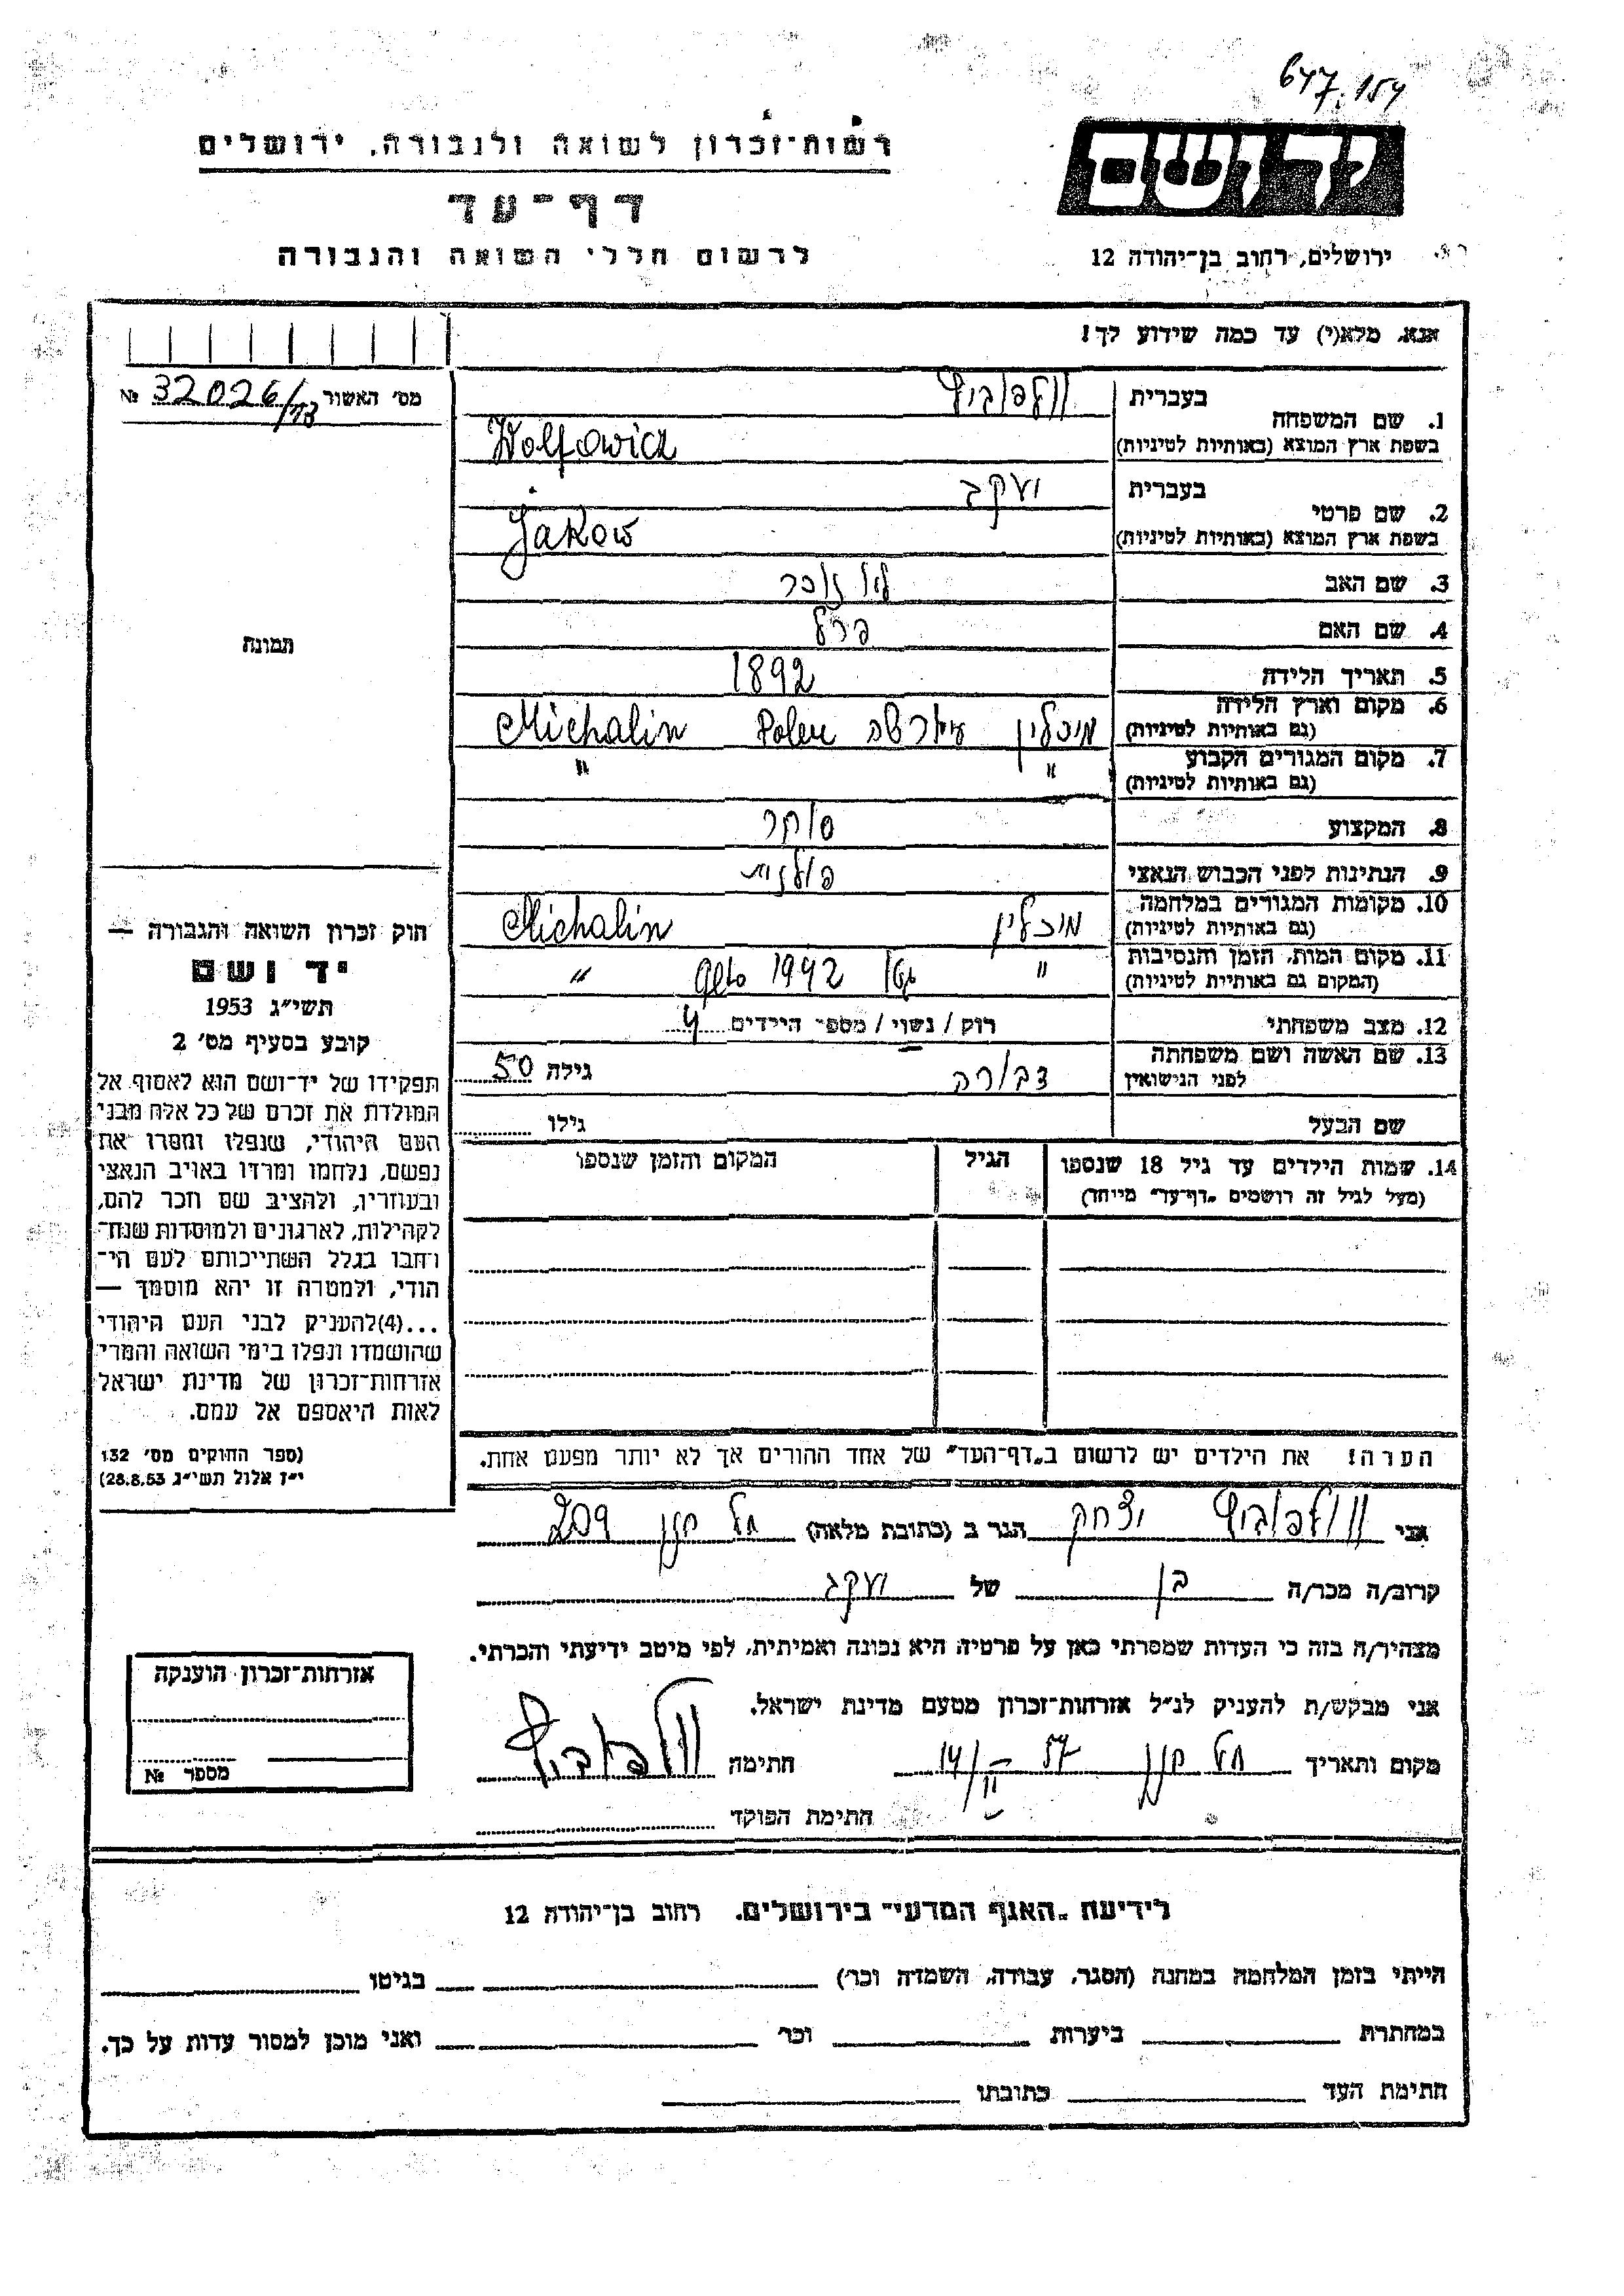 647.154
יד ושם
רשות־זכרון לשואה ולגבורה, ירושלים
דף־עד
ירושלים, רחוב בן־יהודה 12
לרשום חללי השואה והגבורה
אנא, מלא(י) עד כמה שידוע לך!
מס׳ האשור 32026/13 №
בעברית וולפוביץ
1. שם המשפחה
בשפת ארץ המוצא (באותיות לטיניות) Wolfowicz
בעברית יעקב
2. שם פרטי
בשפת ארץ המוצא (באותיות לטיניות) Jakow
3. שם האב
4. שם האם פרל
תמונה
5. תאריך הלידה 1892
6. מקום וארץ הלידה
(גם באותיות לטיניות) מיכלין Michalin
7. מקום המגורים הקבוע
(גם באותיות לטיניות) " "
8. המקצוע סוחר
9. הנתינות לפני הכבוש הנאצי פולנית
10. מקומות המגורים במלחמה
(גם באותיות לטיניות) מיכלין Michalin
11. מקום המות, הזמן והנסיבות
(המקום גם באותיות לטיניות) " 1942 "
12. מצב משפחתי רוק / נשוי / מספר הילדים 4
13. שם האשה ושם משפחתה
לפני הנישואין דבורה גילה 50
שם הבעל גילו
14. שמות הילדים עד גיל 18 שנספו הגיל המקום והזמן שנספו
(מעל לגיל זה רושמים „דף־עד” מיוחד)
חוק זכרון השואה והגבורה —
יד ושם
תשי״ג 1953
קובע בסעיף מס׳ 2
תפקידו של יד־ושם הוא לאסוף אל
המולדת את זכרם של כל אלה מבני
העם היהודי, שנפלו ומסרו את
נפשם, נלחמו ומרדו באויב הנאצי
ובעוזריו, ולהציב שם וזכר להם,
לקהילות, לארגונים ולמוסדות שנח־
רחבו בגלל השתייכותם לעם הי־
הודי, ולמטרה זו יהא מוסמך —
...(4)להעניק לבני העם היהודי
שהושמדו ונפלו בימי השואה והמרי
אזרחות־זכרון של מדינת ישראל
לאות היאספם אל עמם.
(ספר החוקים מס׳ 132
י״ז אלול תשי״ג 28.8.53)
הערה! את הילדים יש לרשום ב„דף־העד” של אחד ההורים אך לא יותר מפעם אחת.
אני וולפוביץ יצחק הגר ב (כתובת מלאה) תל חנן 209
קרוב/ה מכר/ה בן של יעקב
מצהיר/ה בזה כי העדות שמסרתי כאן על פרטיה היא נכונה ואמיתית, לפי מיטב ידיעתי והכרתי.
אני מבקש/ת להעניק לנ״ל אזרחות־זכרון מטעם מדינת ישראל.
מקום ותאריך תל חנן חתימה וולפוביץ
חתימת הפוקד
אזרחות־זכרון הוענקה
מספר №
לידיעת „האגף המדעי” בירושלים. רחוב בן־יהודה 12
הייתי בזמן המלחמה במחנה (הסגר, עבודה, השמדה וכר) בגיטו
במחתרת ביערות וכר ואני מוכן למסור עדות על כך.
חתימת העד כתובתו